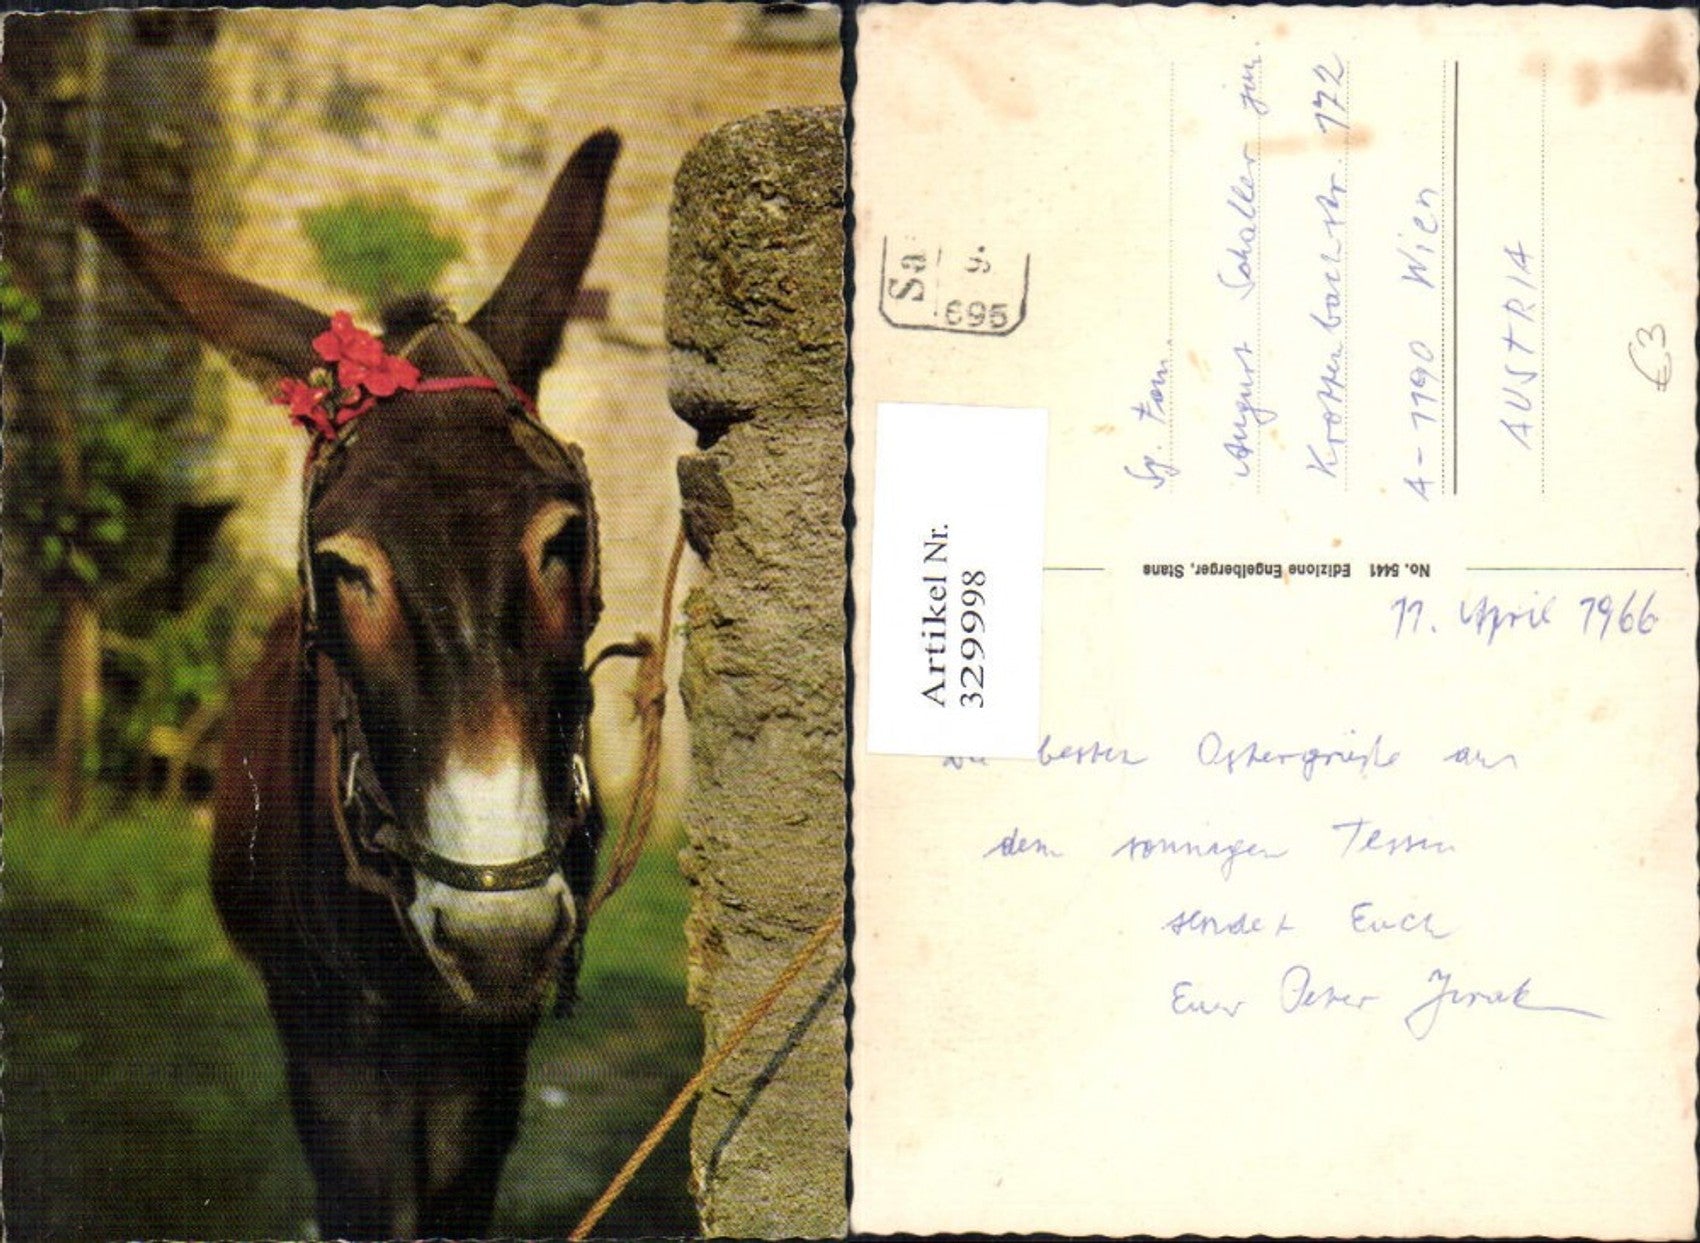 Sa. 9.
695
Artikel Nr.
3299998
Sg. Fam.
August Schaller jun.
Krottenbachstr. 172
A-1190 Wien
AUSTRIA
€3
No. 5441 Edizione Engelberger, Stans
11. April 1966
Die besten Ostergrüße aus
dem sonnigen Tessin
sendet Euch
Euer Peter